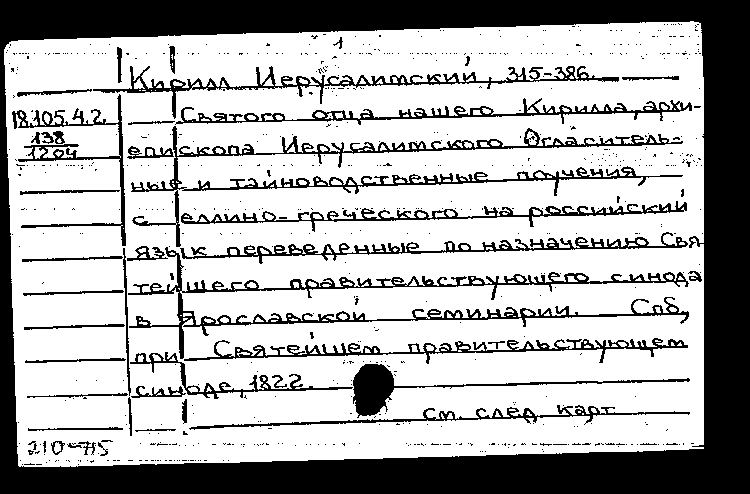 1
Кирилл Иерусалимский, 315-386.
18.105.4.2.
138
1204
Святого отца нашего Кирилла, архи-
епископа Иерусалимского Огласитель-
ные и тайноводственные поучения,
с еллино-греческого на российский
язык переведенные по назначению Свя
тейшего правительствующего синода
в Ярославской семинарии. Спб,
при Святейшем правительствующем
синоде, 1822.
см. след. карт
210-715